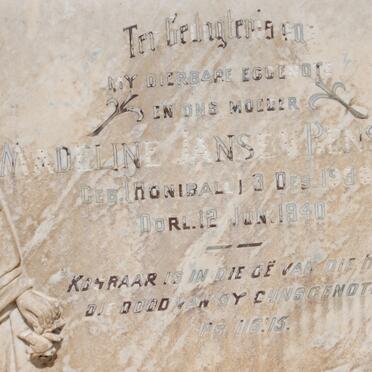 Ter Gedagtenis
MY DIERBARE EGGENOTE
EN ONS MOEDER
MADELINE JANSE
GEB. HONIBALL 3 DES.
OORL. 12 JUN. 1940
"KOSBAAR IS IN DIE OË VAN DIE
DIE DOOD VAN SY GUNSGENOTE
PS 116:15.